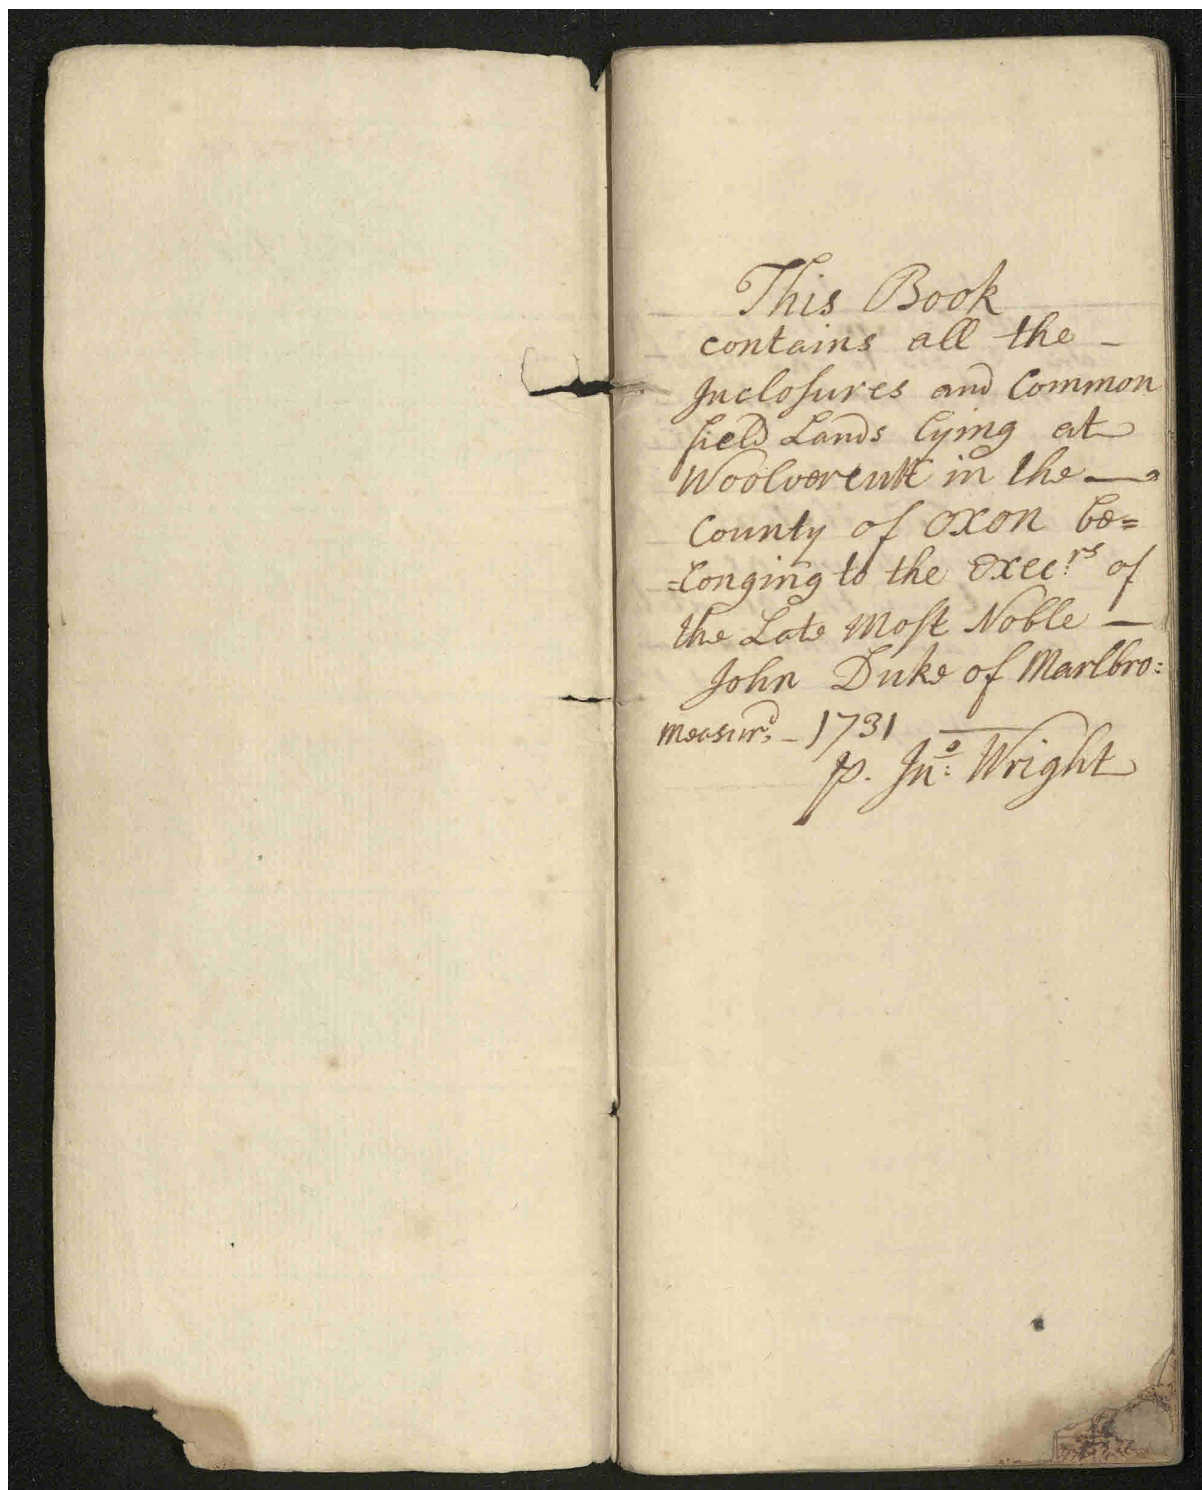 This Book
contains all the -
Inclosures and Common
field Lands lying at
Woolvercutt in the —
County of Oxon be=
=longing to the Exec.rs of
the Late Most Noble —
John Duke of Marlbro:
measur'd, - 1731
p. Jno: Wright